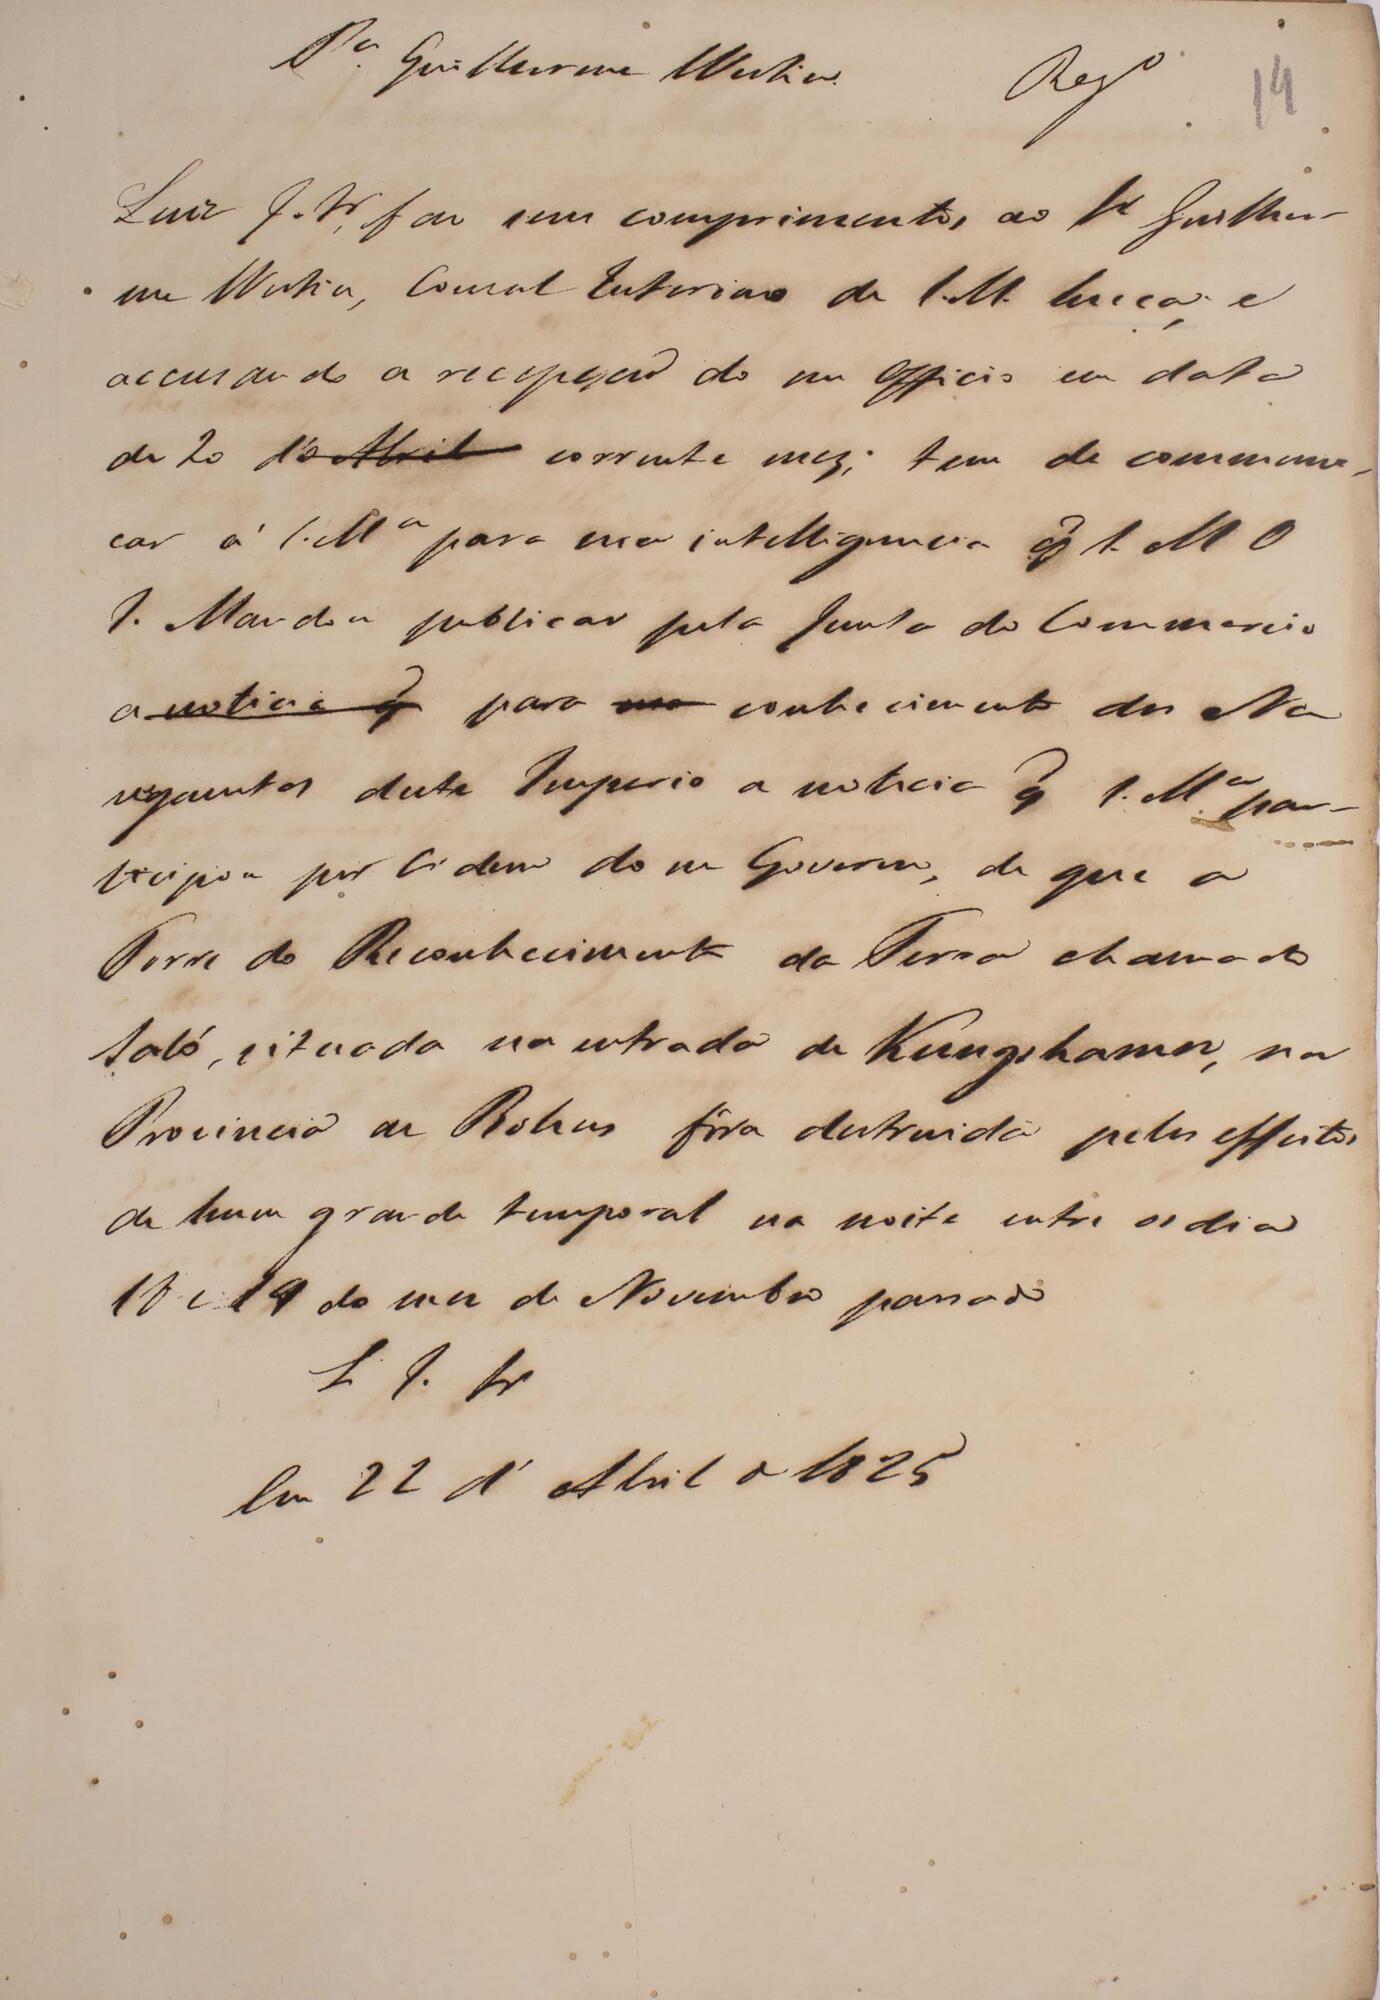 P.ª Guilherme Westin. Reg.º 14
Luiz J. fr, faz seus comprimentos ao Sr Guilher-
me Westin, Consul Interino de S.M. Sueca, e
accusando a recepção do seu Officio em data
de 20 d'Abril corrente mez; tem de communi-
car á S.M.ª para sua intelligencia q̃ S. M O
I. Mandou publicar pela Junta do Commercio
a noticia q̃ para seu conhecimento dos Na
vegantes deste Imperio a noticia q̃ S. M.ª par-
ticipou por Ordem do seu Governo, de que a
Torre do Reconhecimento da Terra chamado
Saló, situada na entrada de Kungshamn, na
Provincia de Bohus fôra destruida pelos effeitos
de hum grande temporal na noite entre os dias
18 e 19 do mez de Novembro passado
L. J. fr
Em 22 d' Abril d 1825